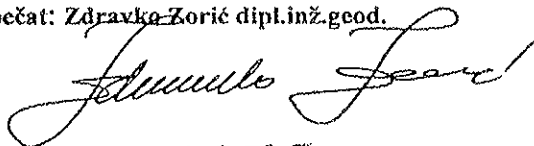 pečat: Zdravko Zorić dipl.inž.geod.